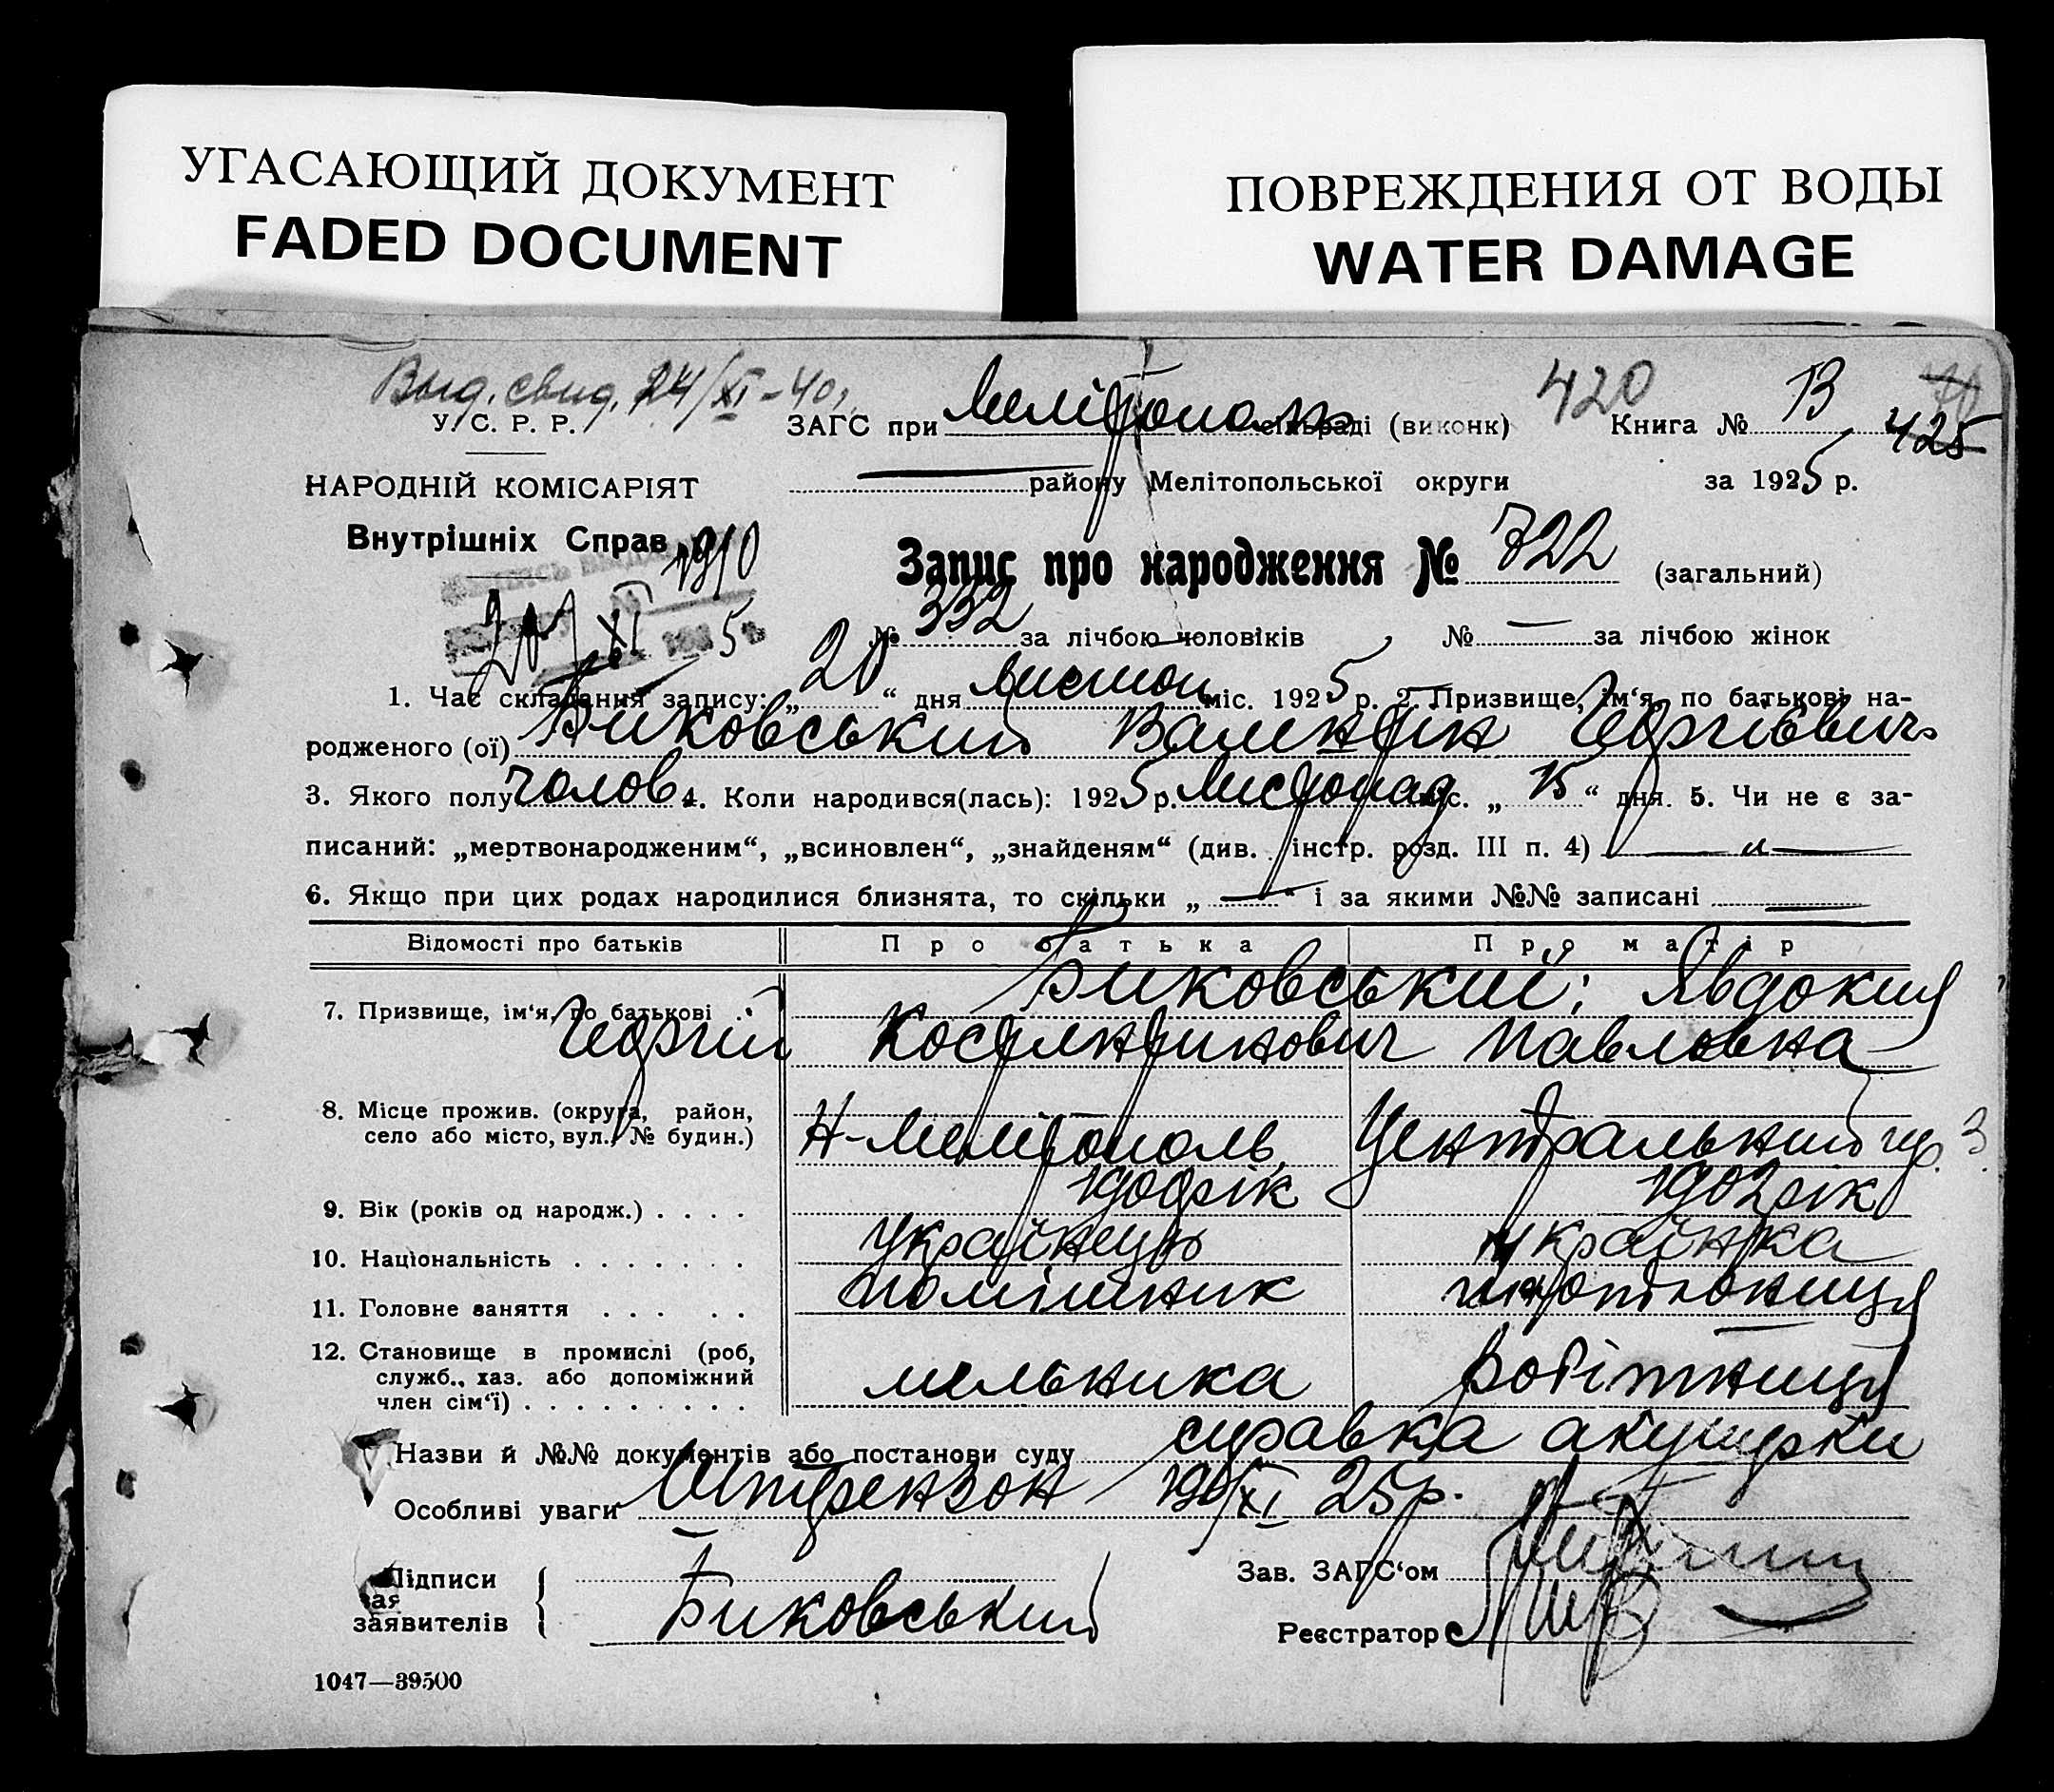 УГАСАЮЩИЙ ДОКУМЕНТ
FADED DOCUMENT
ПОВРЕЖДЕНИЯ ОТ ВОДЫ
WATER DAMAGE
Выд. свид. 24/XI-40,
У. С. Р. Р.
ЗАГС при Мелітополь сільраді (виконк) 420 Книга № 13 425
НАРОДНІЙ КОМІСАРІЯТ
району Мелітопольської округи за 1925 р.
Внутрішніх Справ
1910
Запис про народження № 722 (загальний)
20 XI 5
№ 332 за лічбою чоловіків № — за лічбою жінок
1. Час складання запису: „20“ дня Листоп міс. 1925 р. 2. Призвище, ім‘я, по батькові на-
родженого (ої) Биковський Валентин Георгієвич
3. Якого полу чолов. 4. Коли народився(лась): 1925 р. Листопад міс. „15“ дня. 5. Чи не є за-
писаний: „мертвонародженим“, „всиновлен“, „знайденям“ (див. інстр. розд. III п. 4) — „ —
6. Якщо при цих родах народилися близнята, то скільки „—“ і за якими №№ записані —
Відомості про батьків Про батька Про матір
7. Призвище, ім‘я, по батькові Биковський; Явдокия
Георгий Костянтинович Павловна
8. Місце прожив. (округа, район,
село або місто, вул., № будин.) Н-Мелітополь, Центральний 3
9. Вік (років од народж.) . . . . рік 1902 рік
10. Національність . . . . . . . українець українка
11. Головне заняття . . . . . помішник
12. Становище в промислі (роб,
служб., хаз. або допоміжний
член сім‘ї) . . . . . . . . . мельника робітниця
Назви й №№ документів або постанови суду справка акушерки
Особливі уваги XI 25 р.
Підписи
заявителів Биковський
Зав. ЗАГС‘ом
Реєстратор
1047—39500